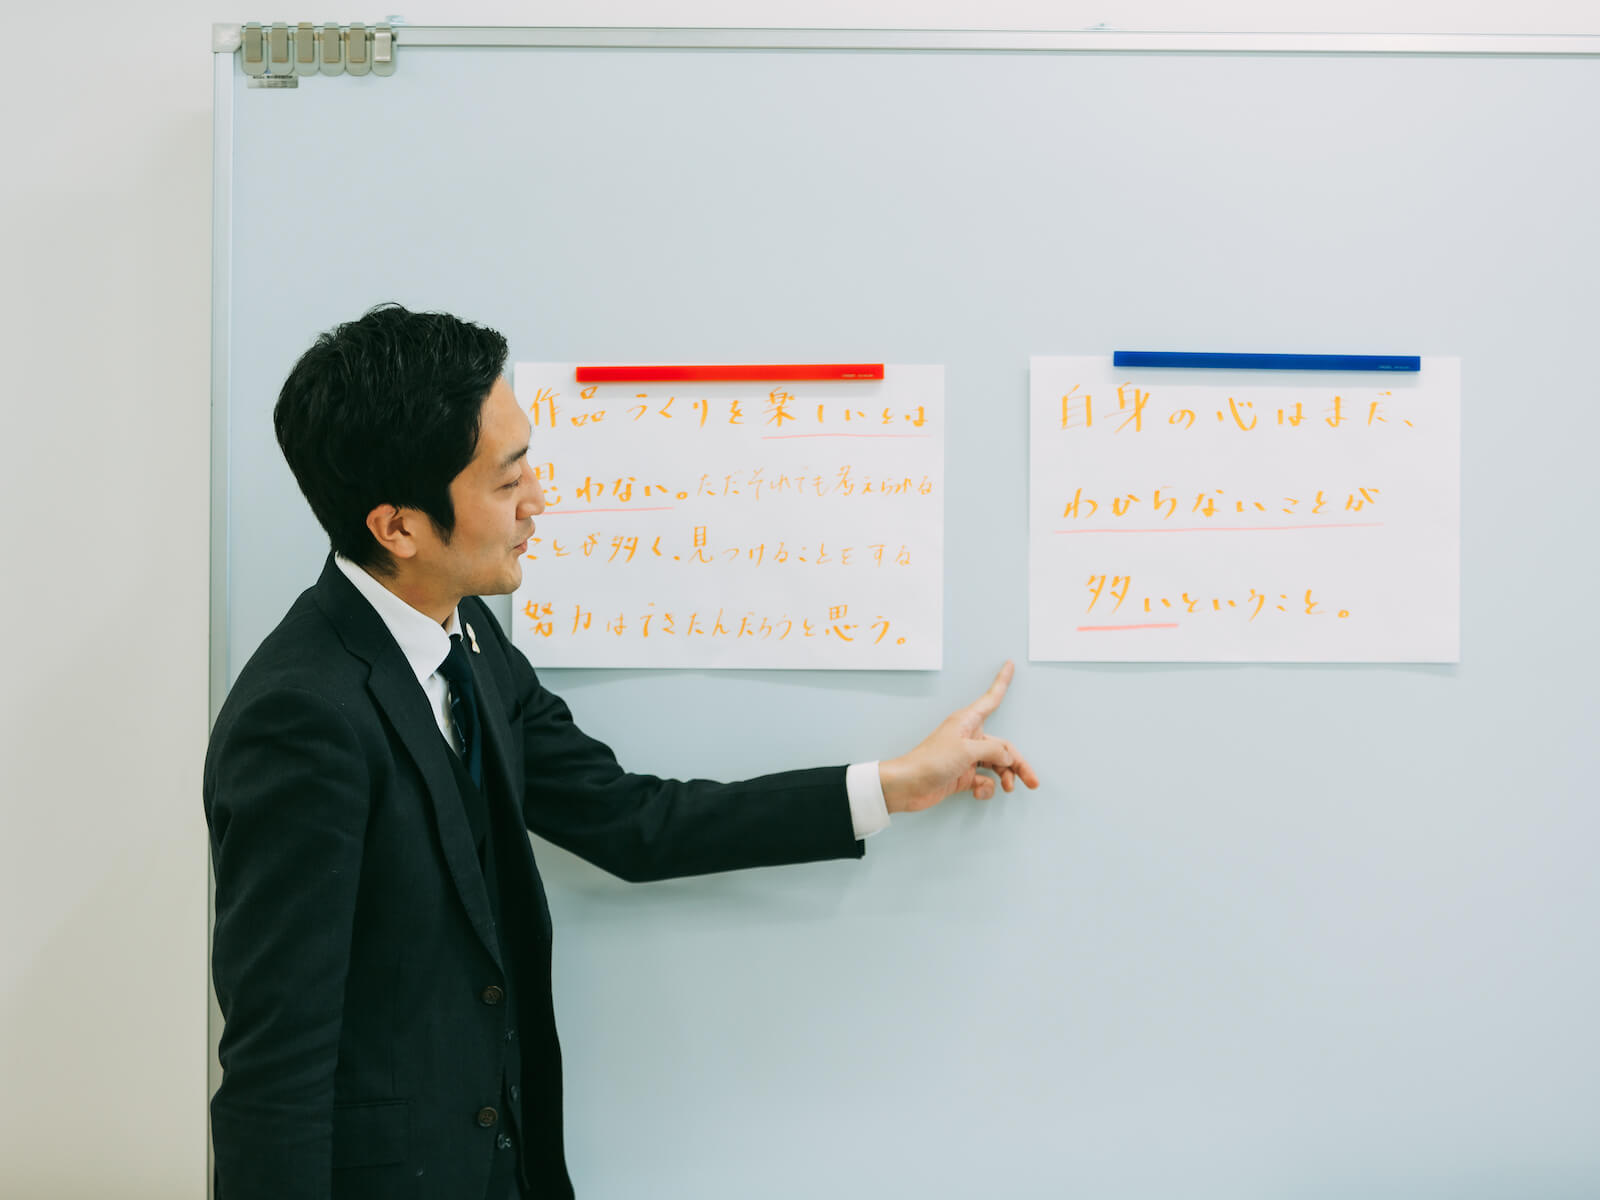 作品づくりを楽しいとは
思わない。ただそれでも考えられる
ことが多く、見つけることをする
努力はできたんだろうと思う。
自身の心はまだ、
わからないことが
多いということ。